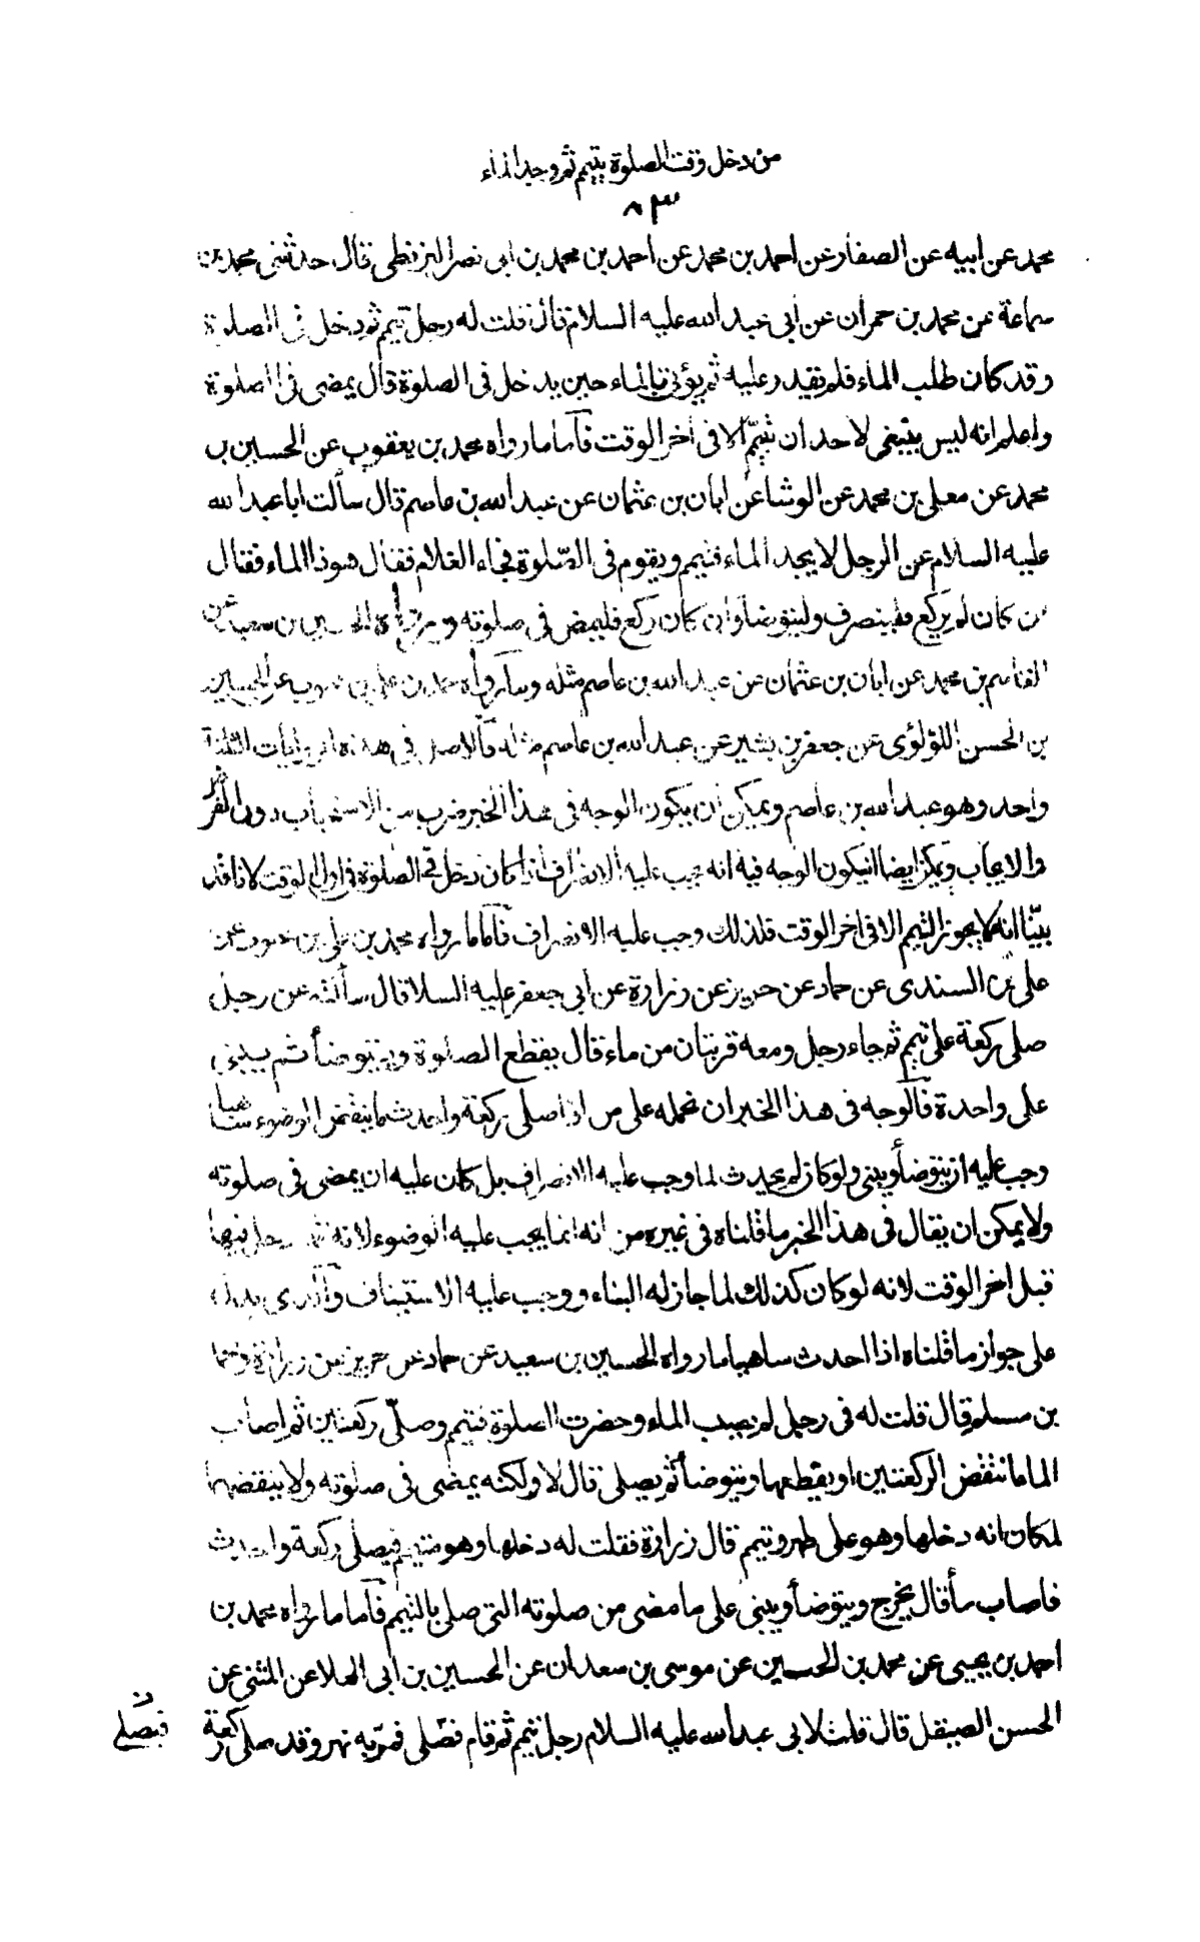 من دخل وقت الصلوة بتيمم ثم وجد الماء
٨٣
محمد عن ابيه عن الصفار عن احمد بن محمد عن احمد بن محمد بن ابى نصر البزنطى قال حدثنى محمد بن
سماعة عن محمد بن حمران عن ابى عبد الله عليه السلام قال قلت له رجل تيمم ثم دخل فى الصلوة
وقد كان طلب الماء فلم يقدر عليه ثم يؤتى بالماء حين يدخل فى الصلوة قال يمضى فى الصلوة
واعلم انه ليس ينبغى لاحد ان يتيمّم الا فى اخر الوقت فاما ما رواه محمد بن يعقوب عن الحسين بن
محمد عن معلى بن محمد عن الوشا عن ابان بن عثمان عن عبد الله بن عاصم قال سألت ابا عبد الله
عليه السلام عن الرجل لا يجد الماء فتيمم ويقوم فى الصّلوة فجاء الغلام فقال هوذا الماء فقال
ان كان لم يركع فلينصرف وليتوضأ وان كان ركع فليمض فى صلوته و رواه الحسين بن سعيد عن
القاسم بن محمد عن ابان بن عثمان عن عبد الله بن عاصم مثله و رواه محمد بن على بن محبوب عن الحسين
بن الحسن اللؤلؤى عن جعفر بن بشير عن عبد الله بن عاصم مثله فالاصل فى هذه الروايات الثلثة
واحد وهو عبد الله بن عاصم ويمكن ان يكون الوجه فى هذا الخبر ضرب من الاستحباب دون الفرض
والايجاب ويمكن ايضا ان يكون الوجه فيه انه يجب عليه الانصراف اذا كان دخل فى الصلوة فى اول الوقت لانا قد
بيّنا انه لا يجوز التيمم الا فى اخر الوقت فلذلك وجب عليه الانصراف فاما ما رواه محمد بن على بن محبوب عن
على بن السندى عن حماد عن حريز عن زرارة عن ابى جعفر عليه السلام قال سألته عن رجل
صلى ركعة على تيمم ثم جاء رجل ومعه قربتان من ماء قال يقطع الصلوة ويتوضأ ثم يبنى
على واحدة فالوجه فى هذا الخبر ان نحمله على من اذا صلى ركعة واحدث ما ينقض الوضوء ساهيا
وجب عليه ان يتوضأ ويبنى ولو كان لم يحدث لما وجب عليه الانصراف بل كان عليه ان يمضى فى صلوته
ولا يمكن ان يقال فى هذا الخبر ما قلناه فى غيره من انه انما يجب عليه الوضوء لانه دخل فيها
قبل اخر الوقت لانه لو كان كذلك لما جاز له البناء ووجب عليه الاستيناف والذى يدل
على جواز ما قلناه اذا احدث ساهيا ما رواه الحسين بن سعيد عن حماد عن حريز عن زرارة ومحمد
بن مسلم قال قلت له فى رجل لم يصب الماء وحضرت الصلوة فتيمم وصلّى ركعتين ثم اصاب
الماء اينقض الركعتين او يقطعها ويتوضأ ثم يصلى قال لا ولكنه يمضى فى صلوته ولا ينقضها
لمكان انه دخلها وهو على طهر وتيمم قال زرارة فقلت له دخلها وهو متيمم فيصلى ركعة واحدث
فاصاب ماء قال يخرج ويتوضأ ويبنى على ما مضى من صلوته التى صلى بالتيمم فاما ما رواه محمد بن
احمد بن يحيى عن محمد بن الحسين عن موسى بن سعدان عن الحسين بن ابى العلا عن المثنى عن
الحسن الصيقل قال قلت لابى عبد الله عليه السلام رجل تيمم ثم قام فصّلى فمرّ به نهر وقد صلى ركعة
فيصّلى